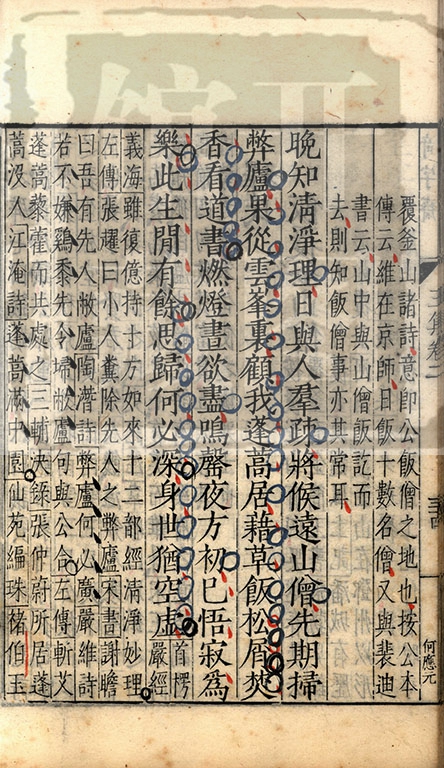 覆釜山諸詩意即公飯僧之地也按公本
傳云維在京師日飯十數名僧又與裴迪
書云山中與山僧飯訖而
去則知飯僧事亦其常耳
晚知清淨理日與人羣疎將候遠山僧先期掃
弊廬果從雲峯裏顧我蓬蒿居藉草飯松屑焚
香看道書燃燈晝欲盡鳴磬夜方初已悟寂為
樂此生閒有餘思歸何必深身世猶空虛首楞
嚴經
義海雖復億持十方如來十二部經清淨妙理
左傳張耀曰小人糞除先人之弊廬宋書謝瞻
曰吾有先人敝廬陶潛詩弊廬何必廣嚴維詩
若不嫌鷄黍先令埽敝廬句與公合左傳斬艾
蓬蒿藜藿而共處之三輔決錄張仲蔚所居蓬
蒿沒人江淹詩蓬蒿滿中園仙苑編珠褚伯玉
何應元